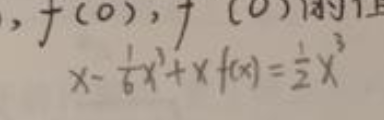 , f(0), f (0)的值
x - \frac{1}{6}x^3 + x f(x) = \frac{1}{2}x^3